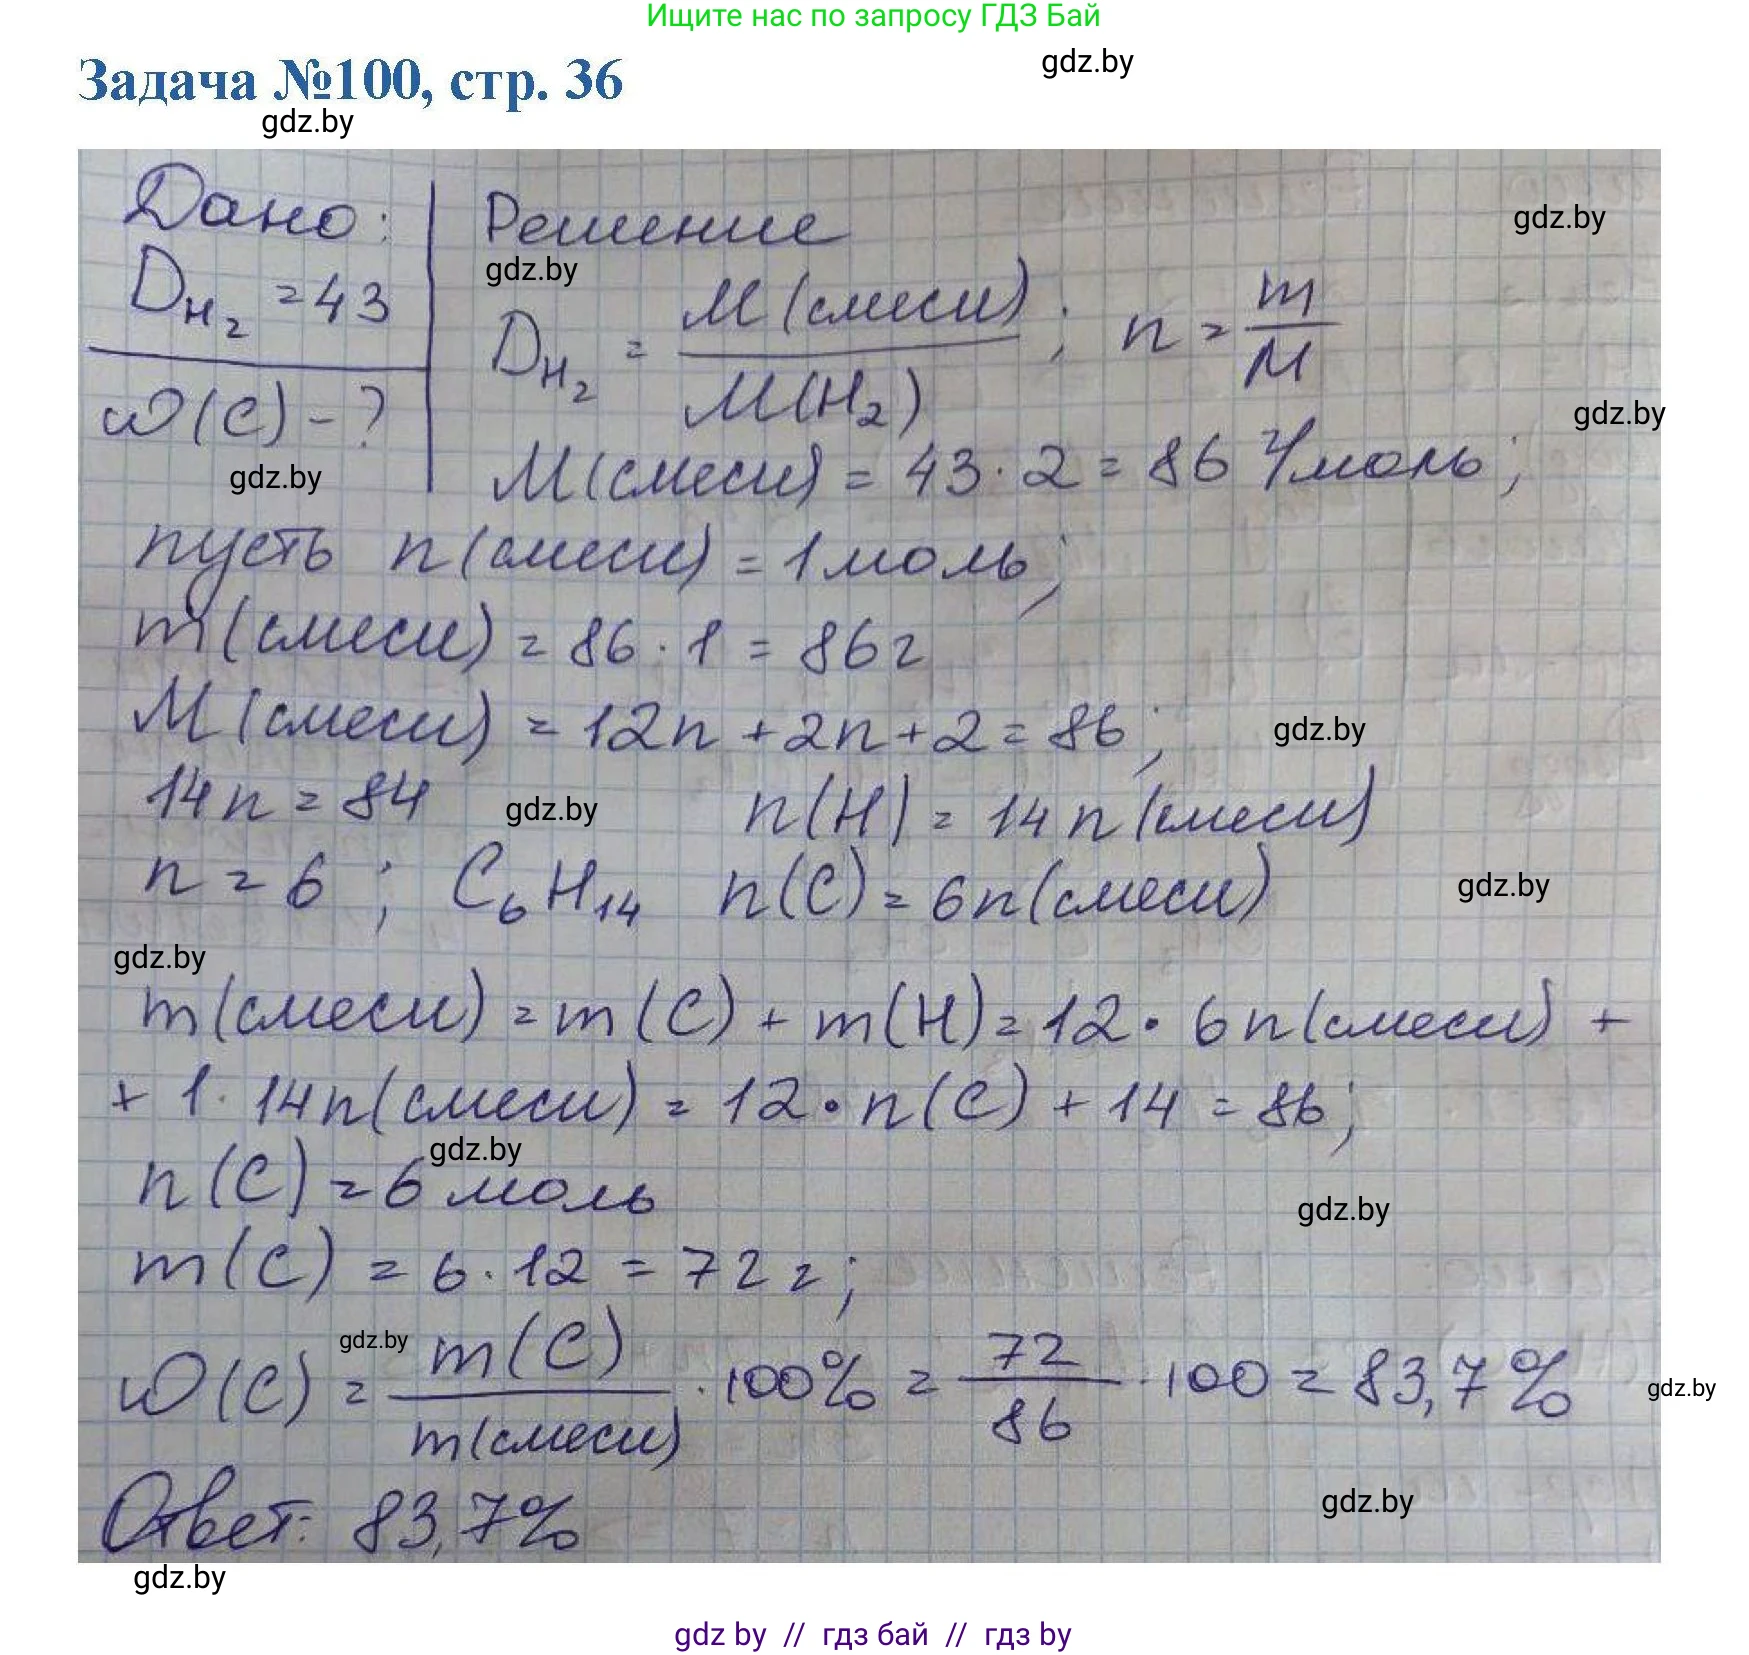 Ищите нас по запросу ГДЗ Бай
Задача №100, стр. 36
gdz.by
gdz.by
Дано:
D_H₂ = 43
ω(C) - ?
Решение
gdz.by
gdz.by
D_H₂ = M(смеси) / M(H₂) ; n = m / M
gdz.by
gdz.by
M(смеси) = 43 · 2 = 86 г/моль;
пусть n(смеси) = 1 моль;
m(смеси) = 86 · 1 = 86 г
M(смеси) = 12n + 2n + 2 = 86;
gdz.by
14n = 84
gdz.by
n(H) = 14n(смеси)
n = 6 ; C₆H₁₄ n(C) = 6n(смеси)
gdz.by
gdz.by
m(смеси) = m(C) + m(H) = 12 · 6n(смеси) +
+ 1 · 14n(смеси) = 12 · n(C) + 14 = 86;
gdz.by
n(C) = 6 моль
gdz.by
m(C) = 6 · 12 = 72 г;
gdz.by
ω(C) = m(C) / m(смеси) · 100% = 72 / 86 · 100 = 83,7%
gdz.by
gdz.by
Ответ: 83,7%
gdz.by
gdz by // гдз бай // гдз by